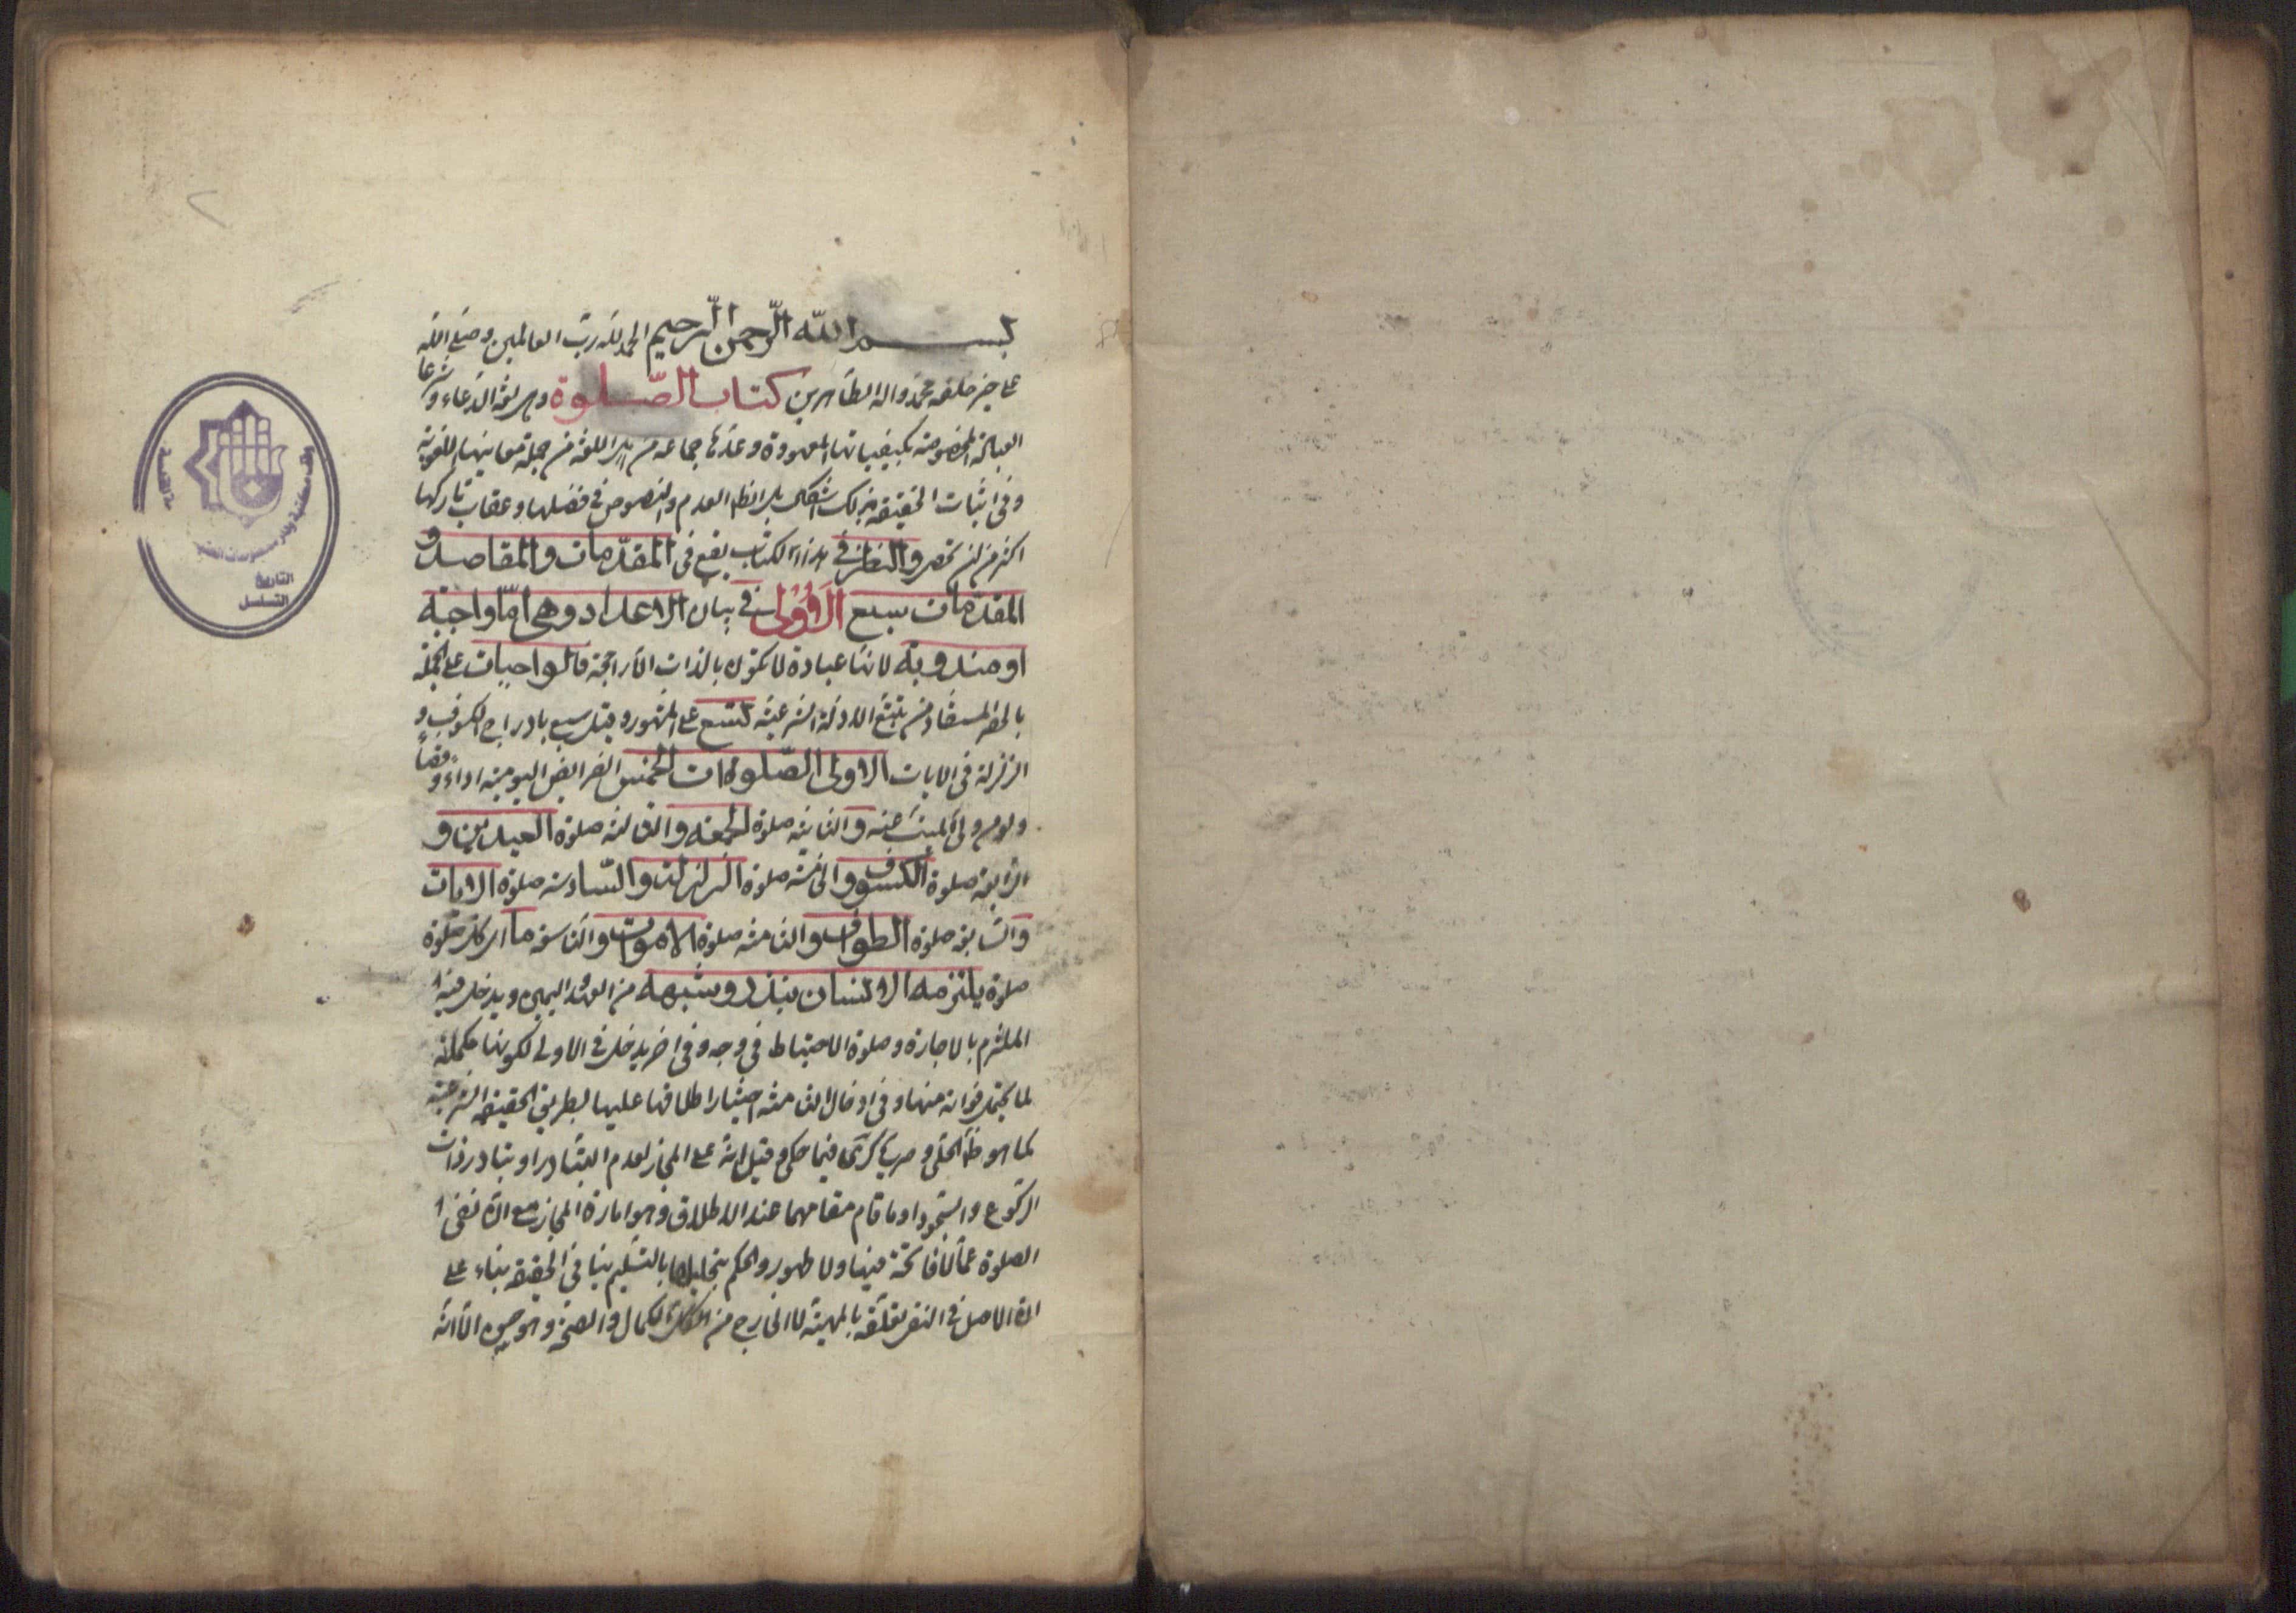 بسم الله الرحمن الرحيم الحمد لله رب العالمين وصلى الله
على خير خلقه محمد واله الطاهرين كتاب الصلوة وهي لغة الدعاء وشرعا
العبادة المخصوصة بكيفياتها المعهودة وعدها جماعة من اهل اللغة من جملة معانيها اللغوية
وفي اثبات الحقيقة بذلك اشكال بل الظاهر العدم والنصوص في فضلها وعقاب تاركها
اكثر من ان تحصر والنظر في هذا الكتاب يقع في المقدمات والمقاصد و
المقدمات سبع الاولى في بيان الاعداد وهي اما واجبة
او مندوبة لانها عبادة لا تكون بالذات الا راجحة فالواجبات على الجملة
بالحصر المستفاد من تتبع الادلة الشرعية تسع على المشهور وقيل سبع بادراج الكسوف و
الزلزلة في الايات الاولى الصلوات الخمس الفرائض اليومية اداء وقضاء
ولو من ولي الميت عنه والثانية صلوة الجمعة والثالثة صلوة العيدين و
الرابعة صلوة الكسوف والخامسة صلوة الزلزلة والسادسة صلوة الايات
والسابعة صلوة الطواف والثامنة صلوة الاموات والتاسعة ما اي كل صلوة
صلوة يلتزمه الانسان بنذر وشبهه من العهد واليمين ويدخل فيه
الملتزم بالاجارة وصلوة الاحتياط في وجه وفي اخر يدخل في الاولى لكونها مكملة
لما يحتمل فواته منها وفي ادخال الثامنة اختيار اطلاقها عليها بطريق الحقيقة الشرعية
كما هو ظاهر المحقق وصريح كرى فيما حكي وقيل انه على المجاز لعدم التبادر او تبادر ذات
الركوع والسجود او ما قام مقامهما عند الاطلاق وهو امارة المجاز مع ان نفي
الصلوة عما لا فاتحة فيها ولا طهور والحكم بتحليلها بالتسليم ينافي الحقيقة بناء على
ان الاصل في النفي تعلقه بالمهية لا الخارج من الكمال والصحة وهو حسن الا انه